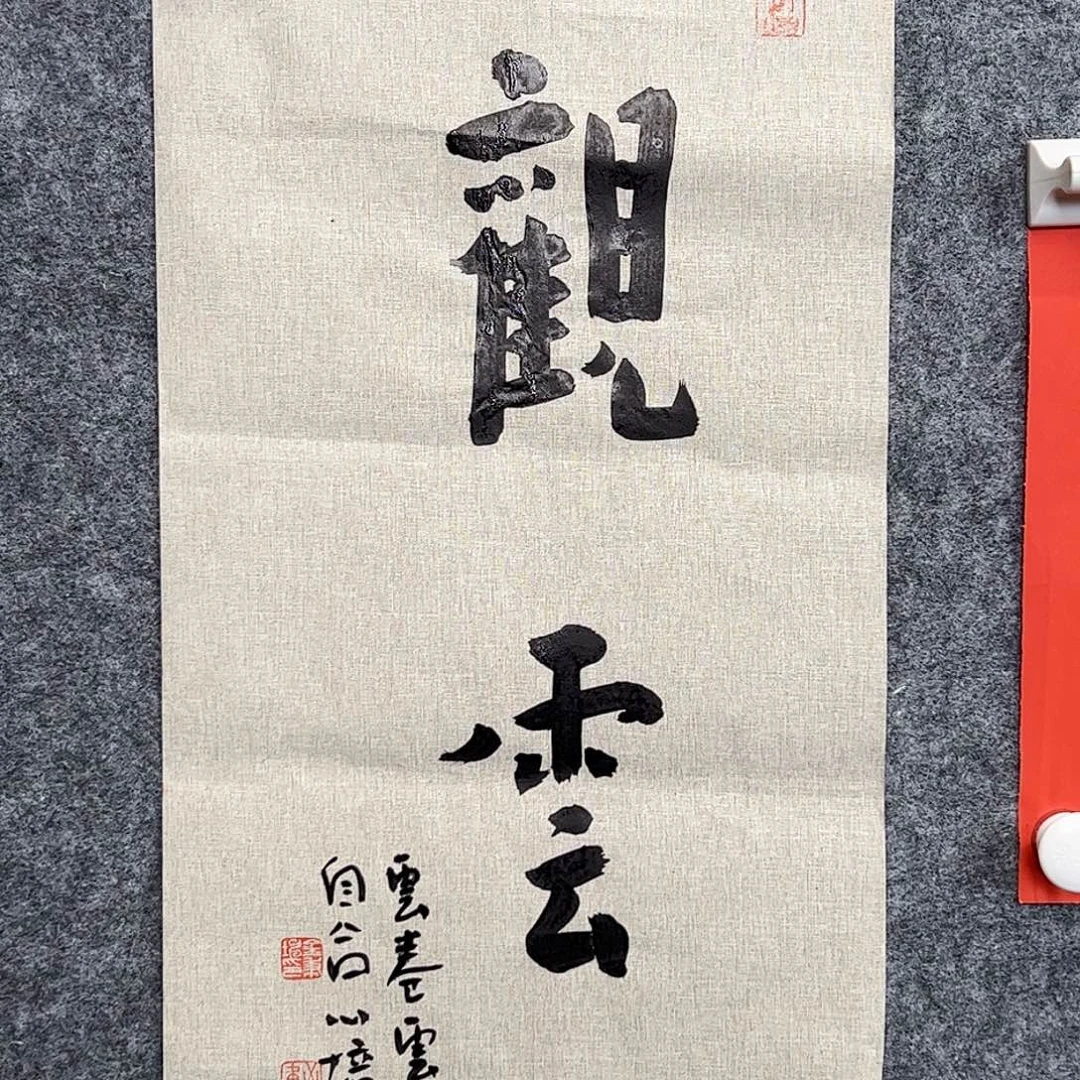 觀
雲
雲卷雲
自
心境